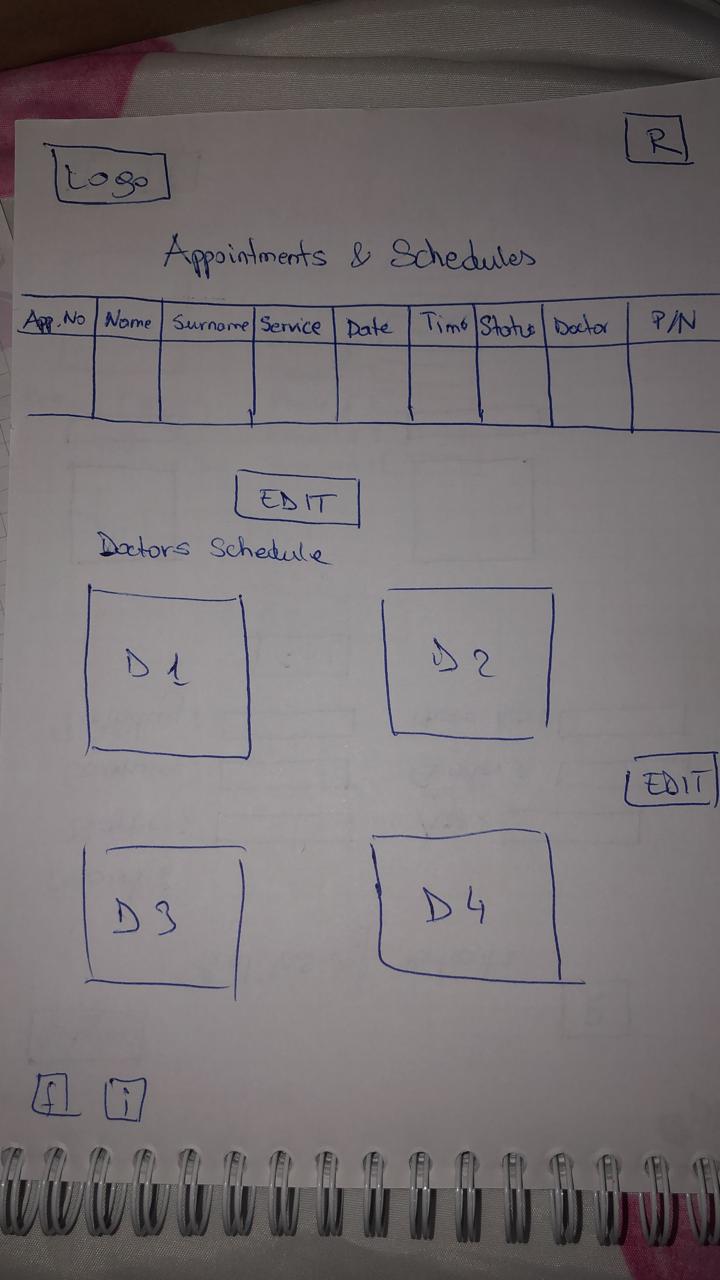 Logo
R
Appointments & Schedules
App.No Name Surname Service Date Time Status Doctor P/N
EDIT
Doctors Schedule
D1 D2
EDIT
D3 D4
f i